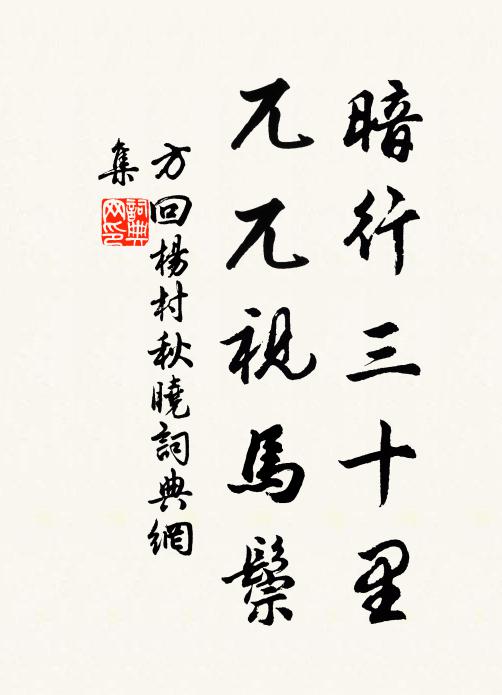 暗行三十里
兀兀視馬鬃
方回楊村秋曉詞典網
集
詞典網印